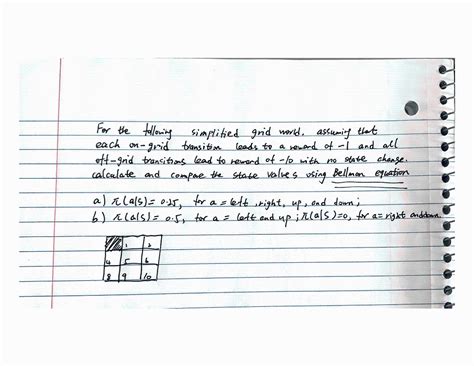 For the following simplified grid world, assuming that
each on-grid transition leads to a reward of -1 and all
off-grid transitions lead to reward of -10 with no state change.
calculate and compare the state values using Bellman equation
a) π(a|s) = 0.25, for a = left, right, up, and down;
b) π(a|s) = 0.5, for a = left and up; π(a|s)=0, for a = right and down.
1 2
4 5 6
8 9 10